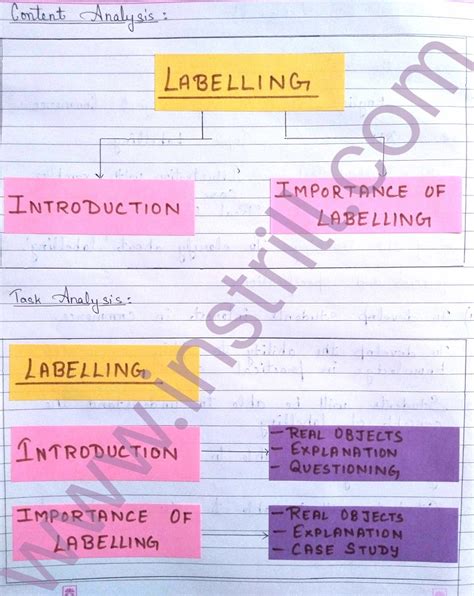 Content Analysis:
LABELLING
INTRODUCTION
IMPORTANCE OF
LABELLING
Task Analysis:
LABELLING
INTRODUCTION
- REAL OBJECTS
- EXPLANATION
- QUESTIONING
IMPORTANCE OF
LABELLING
- REAL OBJECTS
- EXPLANATION
- CASE STUDY
www.instrill.com